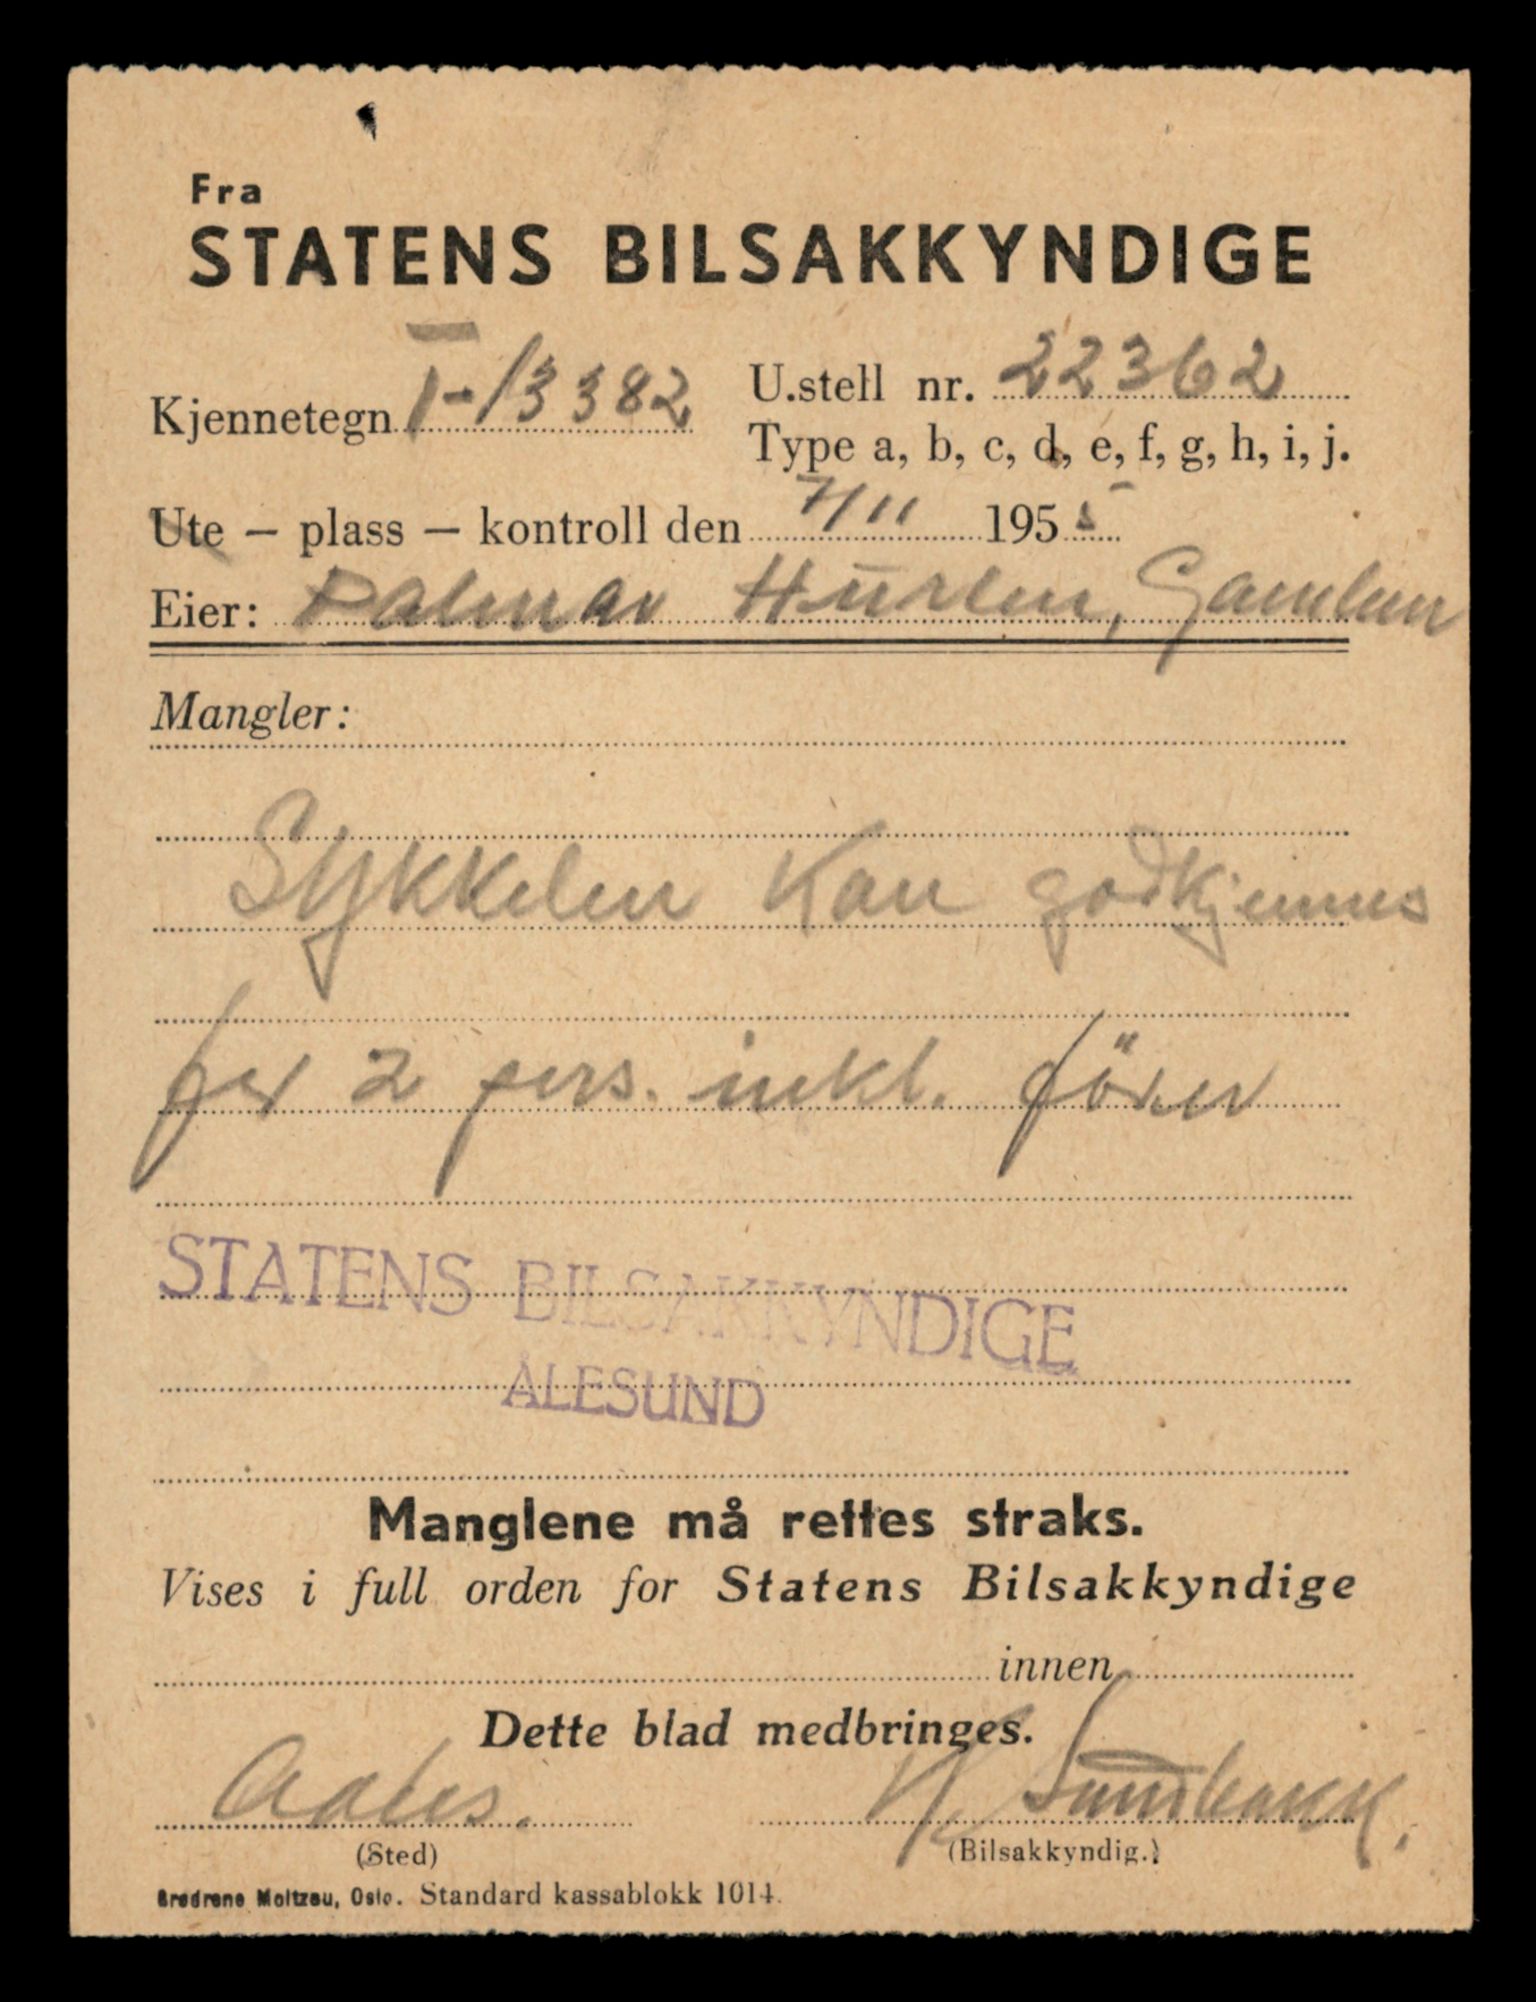 Fra
STATENS BILSAKKYNDIGE
Kjennetegn T-13382
U.stell nr. 22362
Type a, b, c, d, e, f, g, h, i, j.
Ute – plass – kontroll den 7/11 1955
Eier: Palmar Hurlen,
Mangler:
Sykkelen kan godkjennes
for 2 pers. inkl. fører
STATENS BILSAKKYNDIGE
ÅLESUND
Manglene må rettes straks.
Vises i full orden for Statens Bilsakkyndige
innen
Dette blad medbringes.
Aales. K. Sundbakk.
(Sted) (Bilsakkyndig.)
Brødrene Moltzau, Oslo. Standard kassablokk 1014.